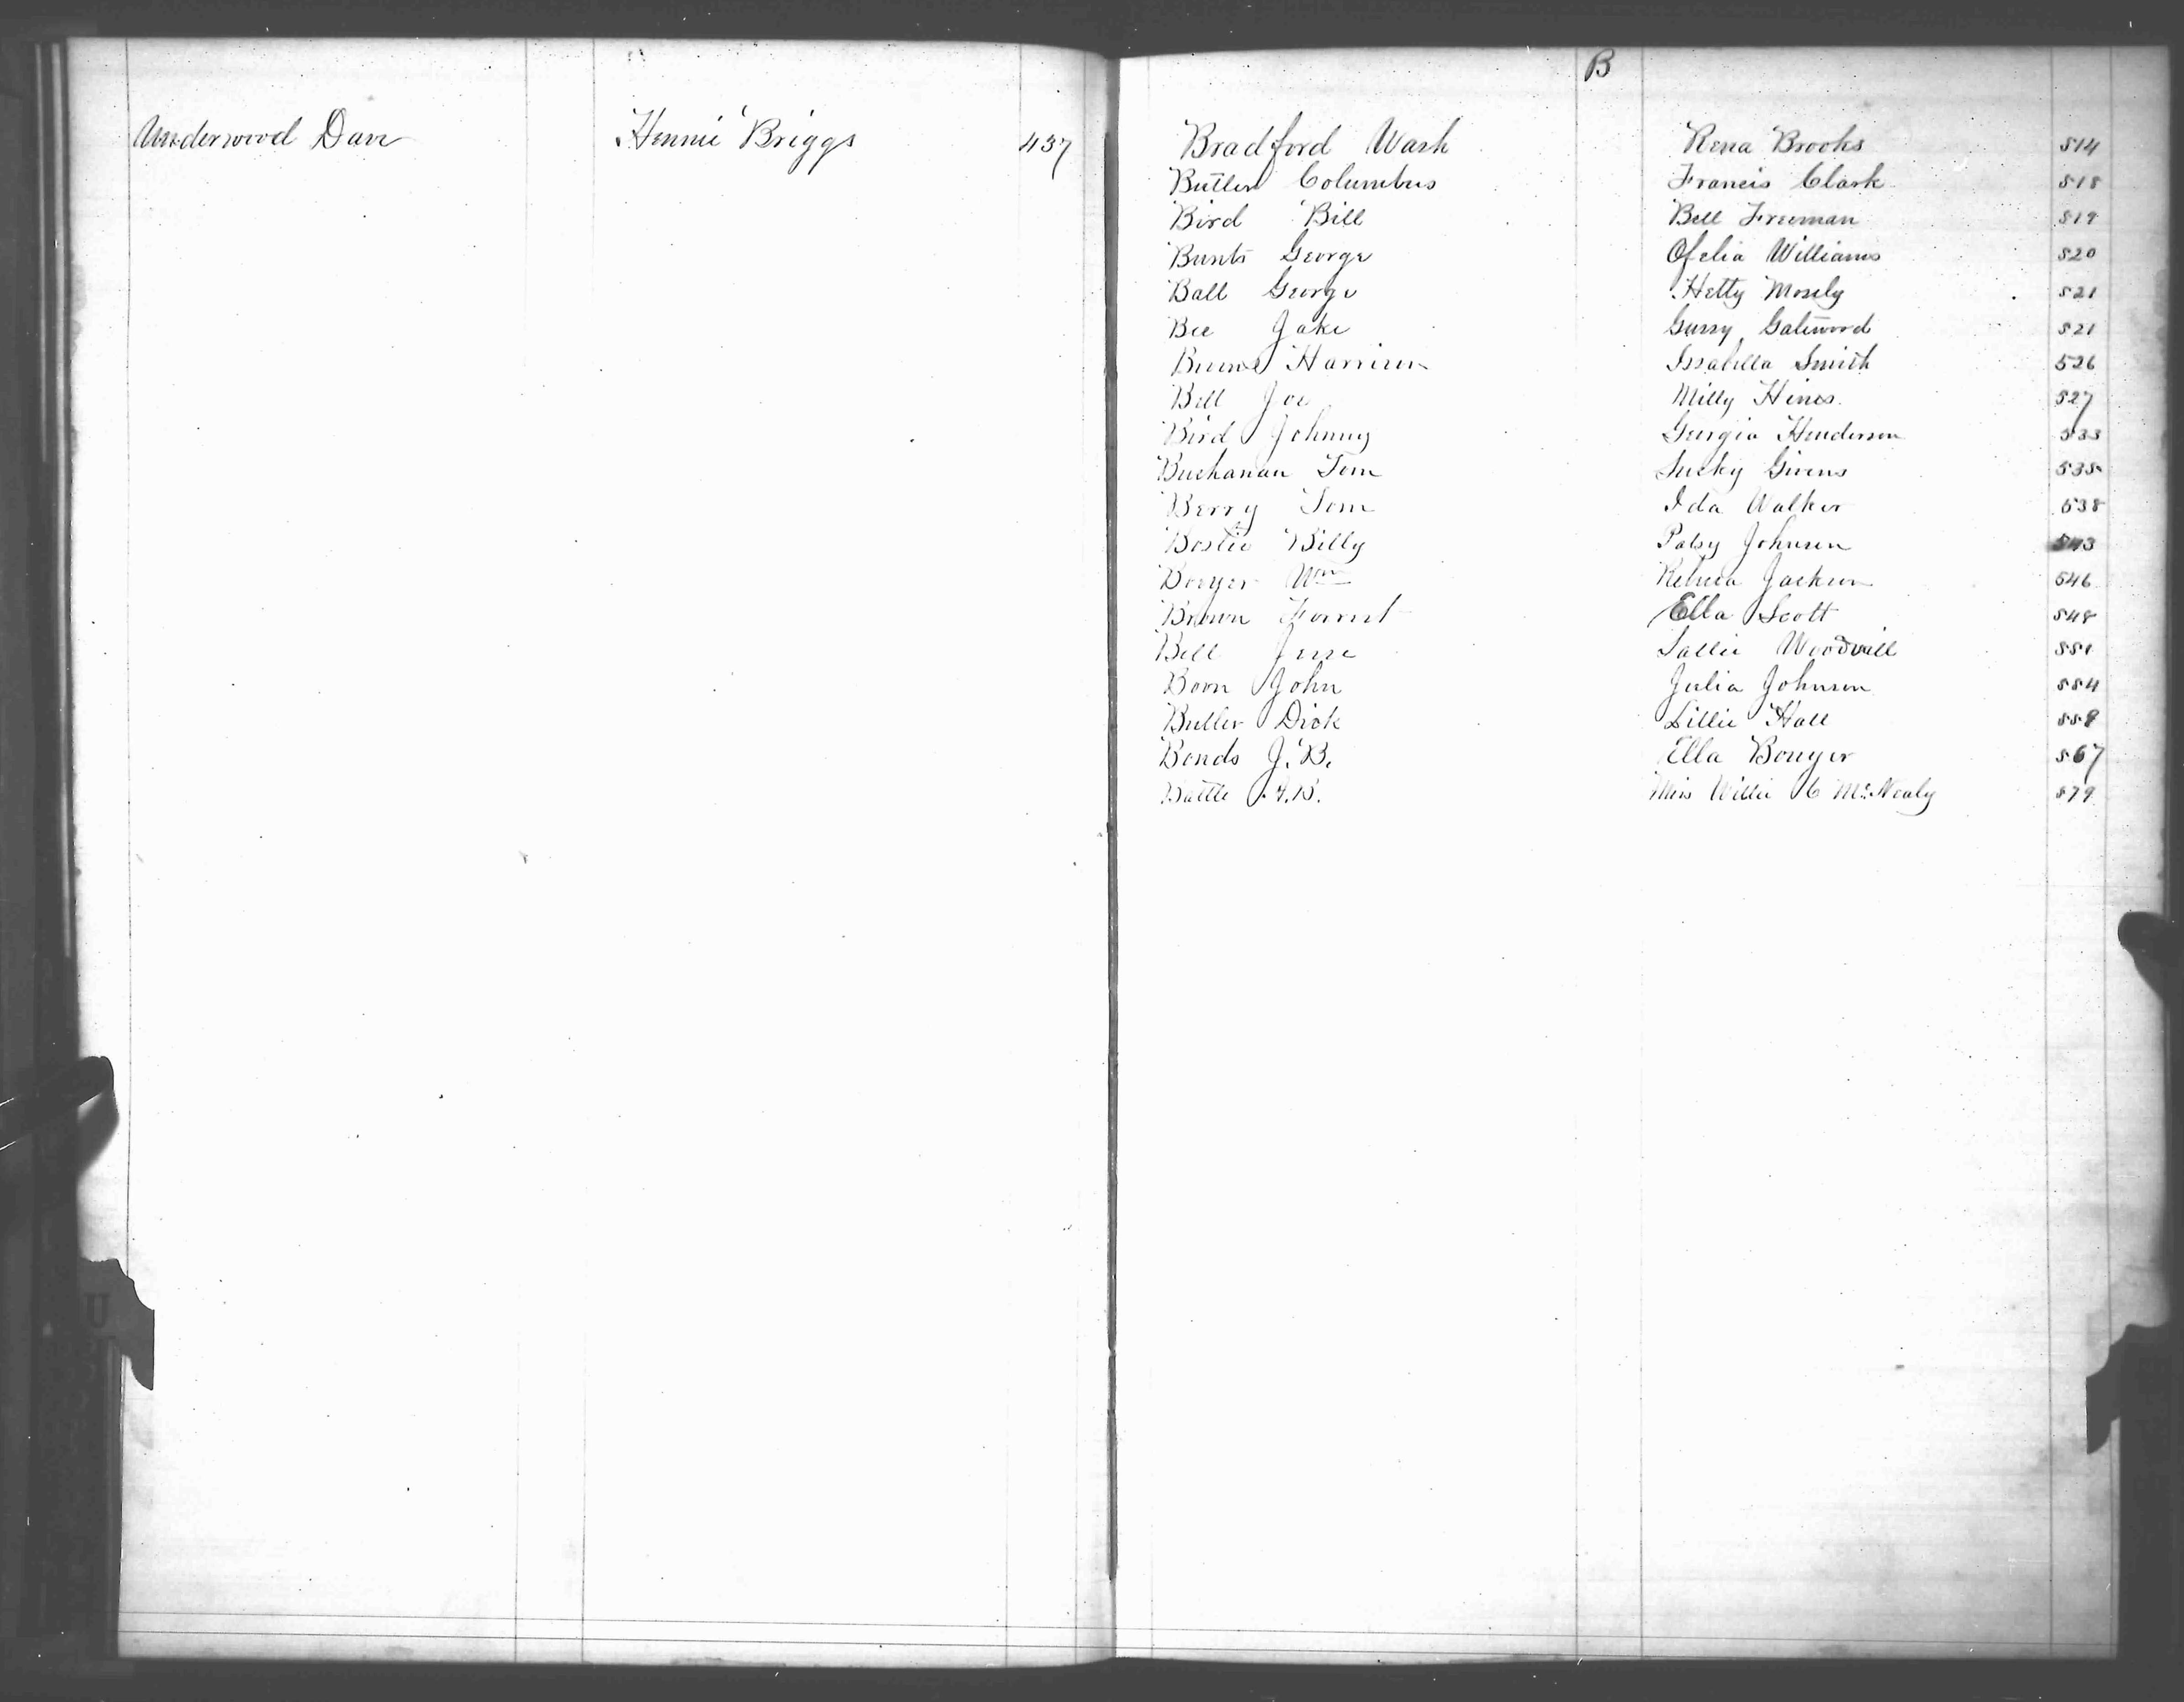 Underwood Dave Hennie Briggs 437
B
Bradford Wash Rena Brooks 514
Butler Columbus Francis Clark 518
Bird Bill Bell Freeman 519
Bunts George Ofelia Williams 520
Ball George Hetty Mosely 521
Bee Jake Gussy Gatewood 521
Harrison Issabella Smith 526
Bell Joe Milly Hines 527
Bird Johnny Georgia Henderson 533
Buchanan Tom Sucky Givens 535
Berry Tom Ida Walker 538
Bostic Billy Patsy Johnson 543
Booyer Wm Rebeca Jackson 546
Brown Forrest Ella Scott 548
Bell Jesse Sallie Woodvill 551
Boon John Julia Johnson 554
Butler Dick Lillie Hall 558
Bonds J. B. Ella Bouyer 567
Battle Miss Willie C McNealy 579
U